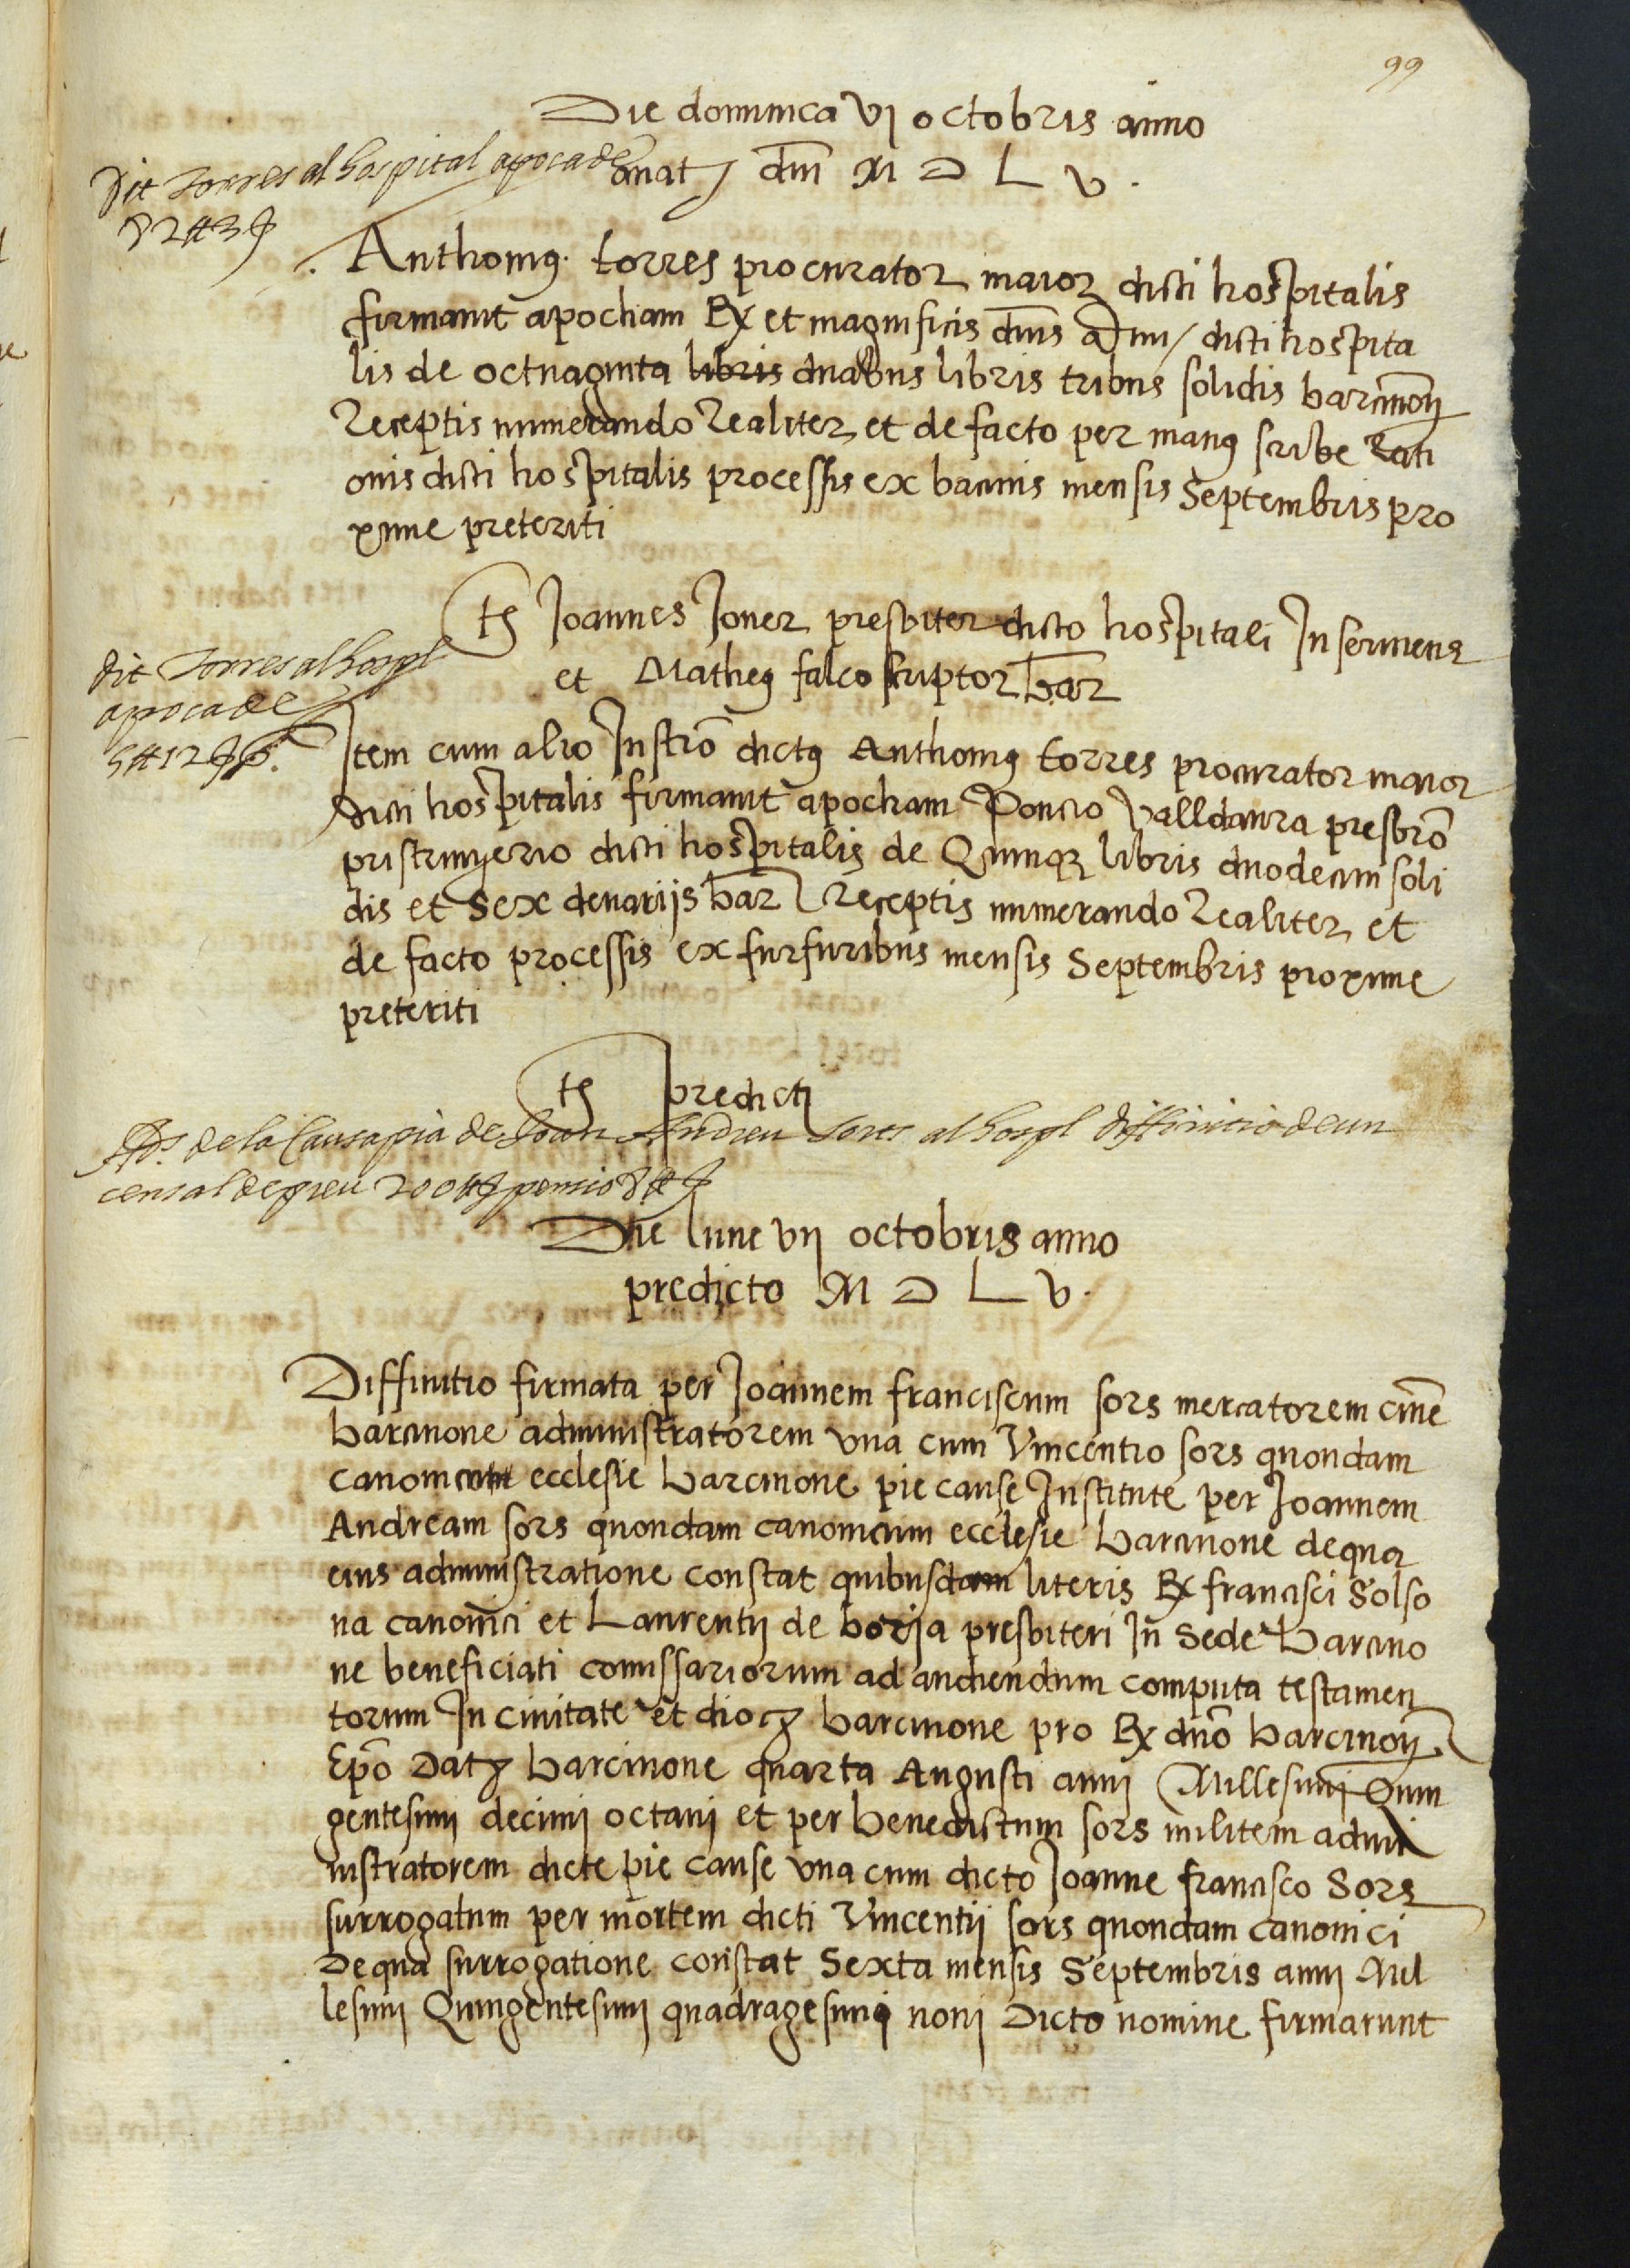 99
Die dominica vj octobris anno
a nat$ dni M D L v.
Dit Torres al hospital apoca de
82 # 3 ſ
Anthonius torres procurator maior dicti hospitalis
firmavit apocham Rx et magnificis dnis Admi / dicti hospita
lis de octuaginta libris duabus libris tribus solidis barcinon
Receptis numerando Realiter et de facto per manus scribe Rati
onis dicti hospitalis processis ex bacinis mensis Septembris pro
xime preteriti
ts Joannes Joner presbiter dicto hospitali Inserviens
et Matheus falco scriptor bar
Dit Torres al hospl
apoca de
5 # 12 ſ 6.
Item cum alio Instro dictus Anthonius torres procurator maior
dicti hospitalis firmavit apocham Poncio Valldaura presbro
pristinyerio dicti hospitalis de Quinque libris duodecim soli
dis et Sex denarijs bar Receptis numerando Realiter et
de facto processis ex furfuribus mensis Septembris proxime
preteriti
ts predicti
de la Causa pia de Joan Andreu Sors al hospl diffinitio de un
censal de preu 200 # ſ pensio 8 # ſ
Die lune vij octobris anno
predicto M D L v.
Diffinitio firmata per Joannem franciscum sors mercatorem civem
barcinone administratorem una cum Vincentio sors quondam
canonicum ecclesie barcinone pie cause Institute per Joannem
Andream sors quondam canonicum ecclesie barcinone de qua
eius administratione constat quibusdam literis Rx francisci Solso
na canonici et Laurentij de borja presbiteri In Sede barcino
ne beneficiati comissariorum ad audiendum computa testamen
torum In civitate et dioc$ barcinone pro Rx duo barcinon
Epo Dat$ barcinone quarta Augusti anni Millesimi Quin
gentesimi decimi octavi et per benedictum sors militem admi
nistratorem dicte pie cause una cum dicto Joanne francisco Sors
surrogatum per mortem dicti Vincentij sors quondam canonici
De qua surrogatione constat Sexta mensis Septembris anni Mil
lesimi Quingentesimi quadragesimi noni Dicto nomine firmarunt